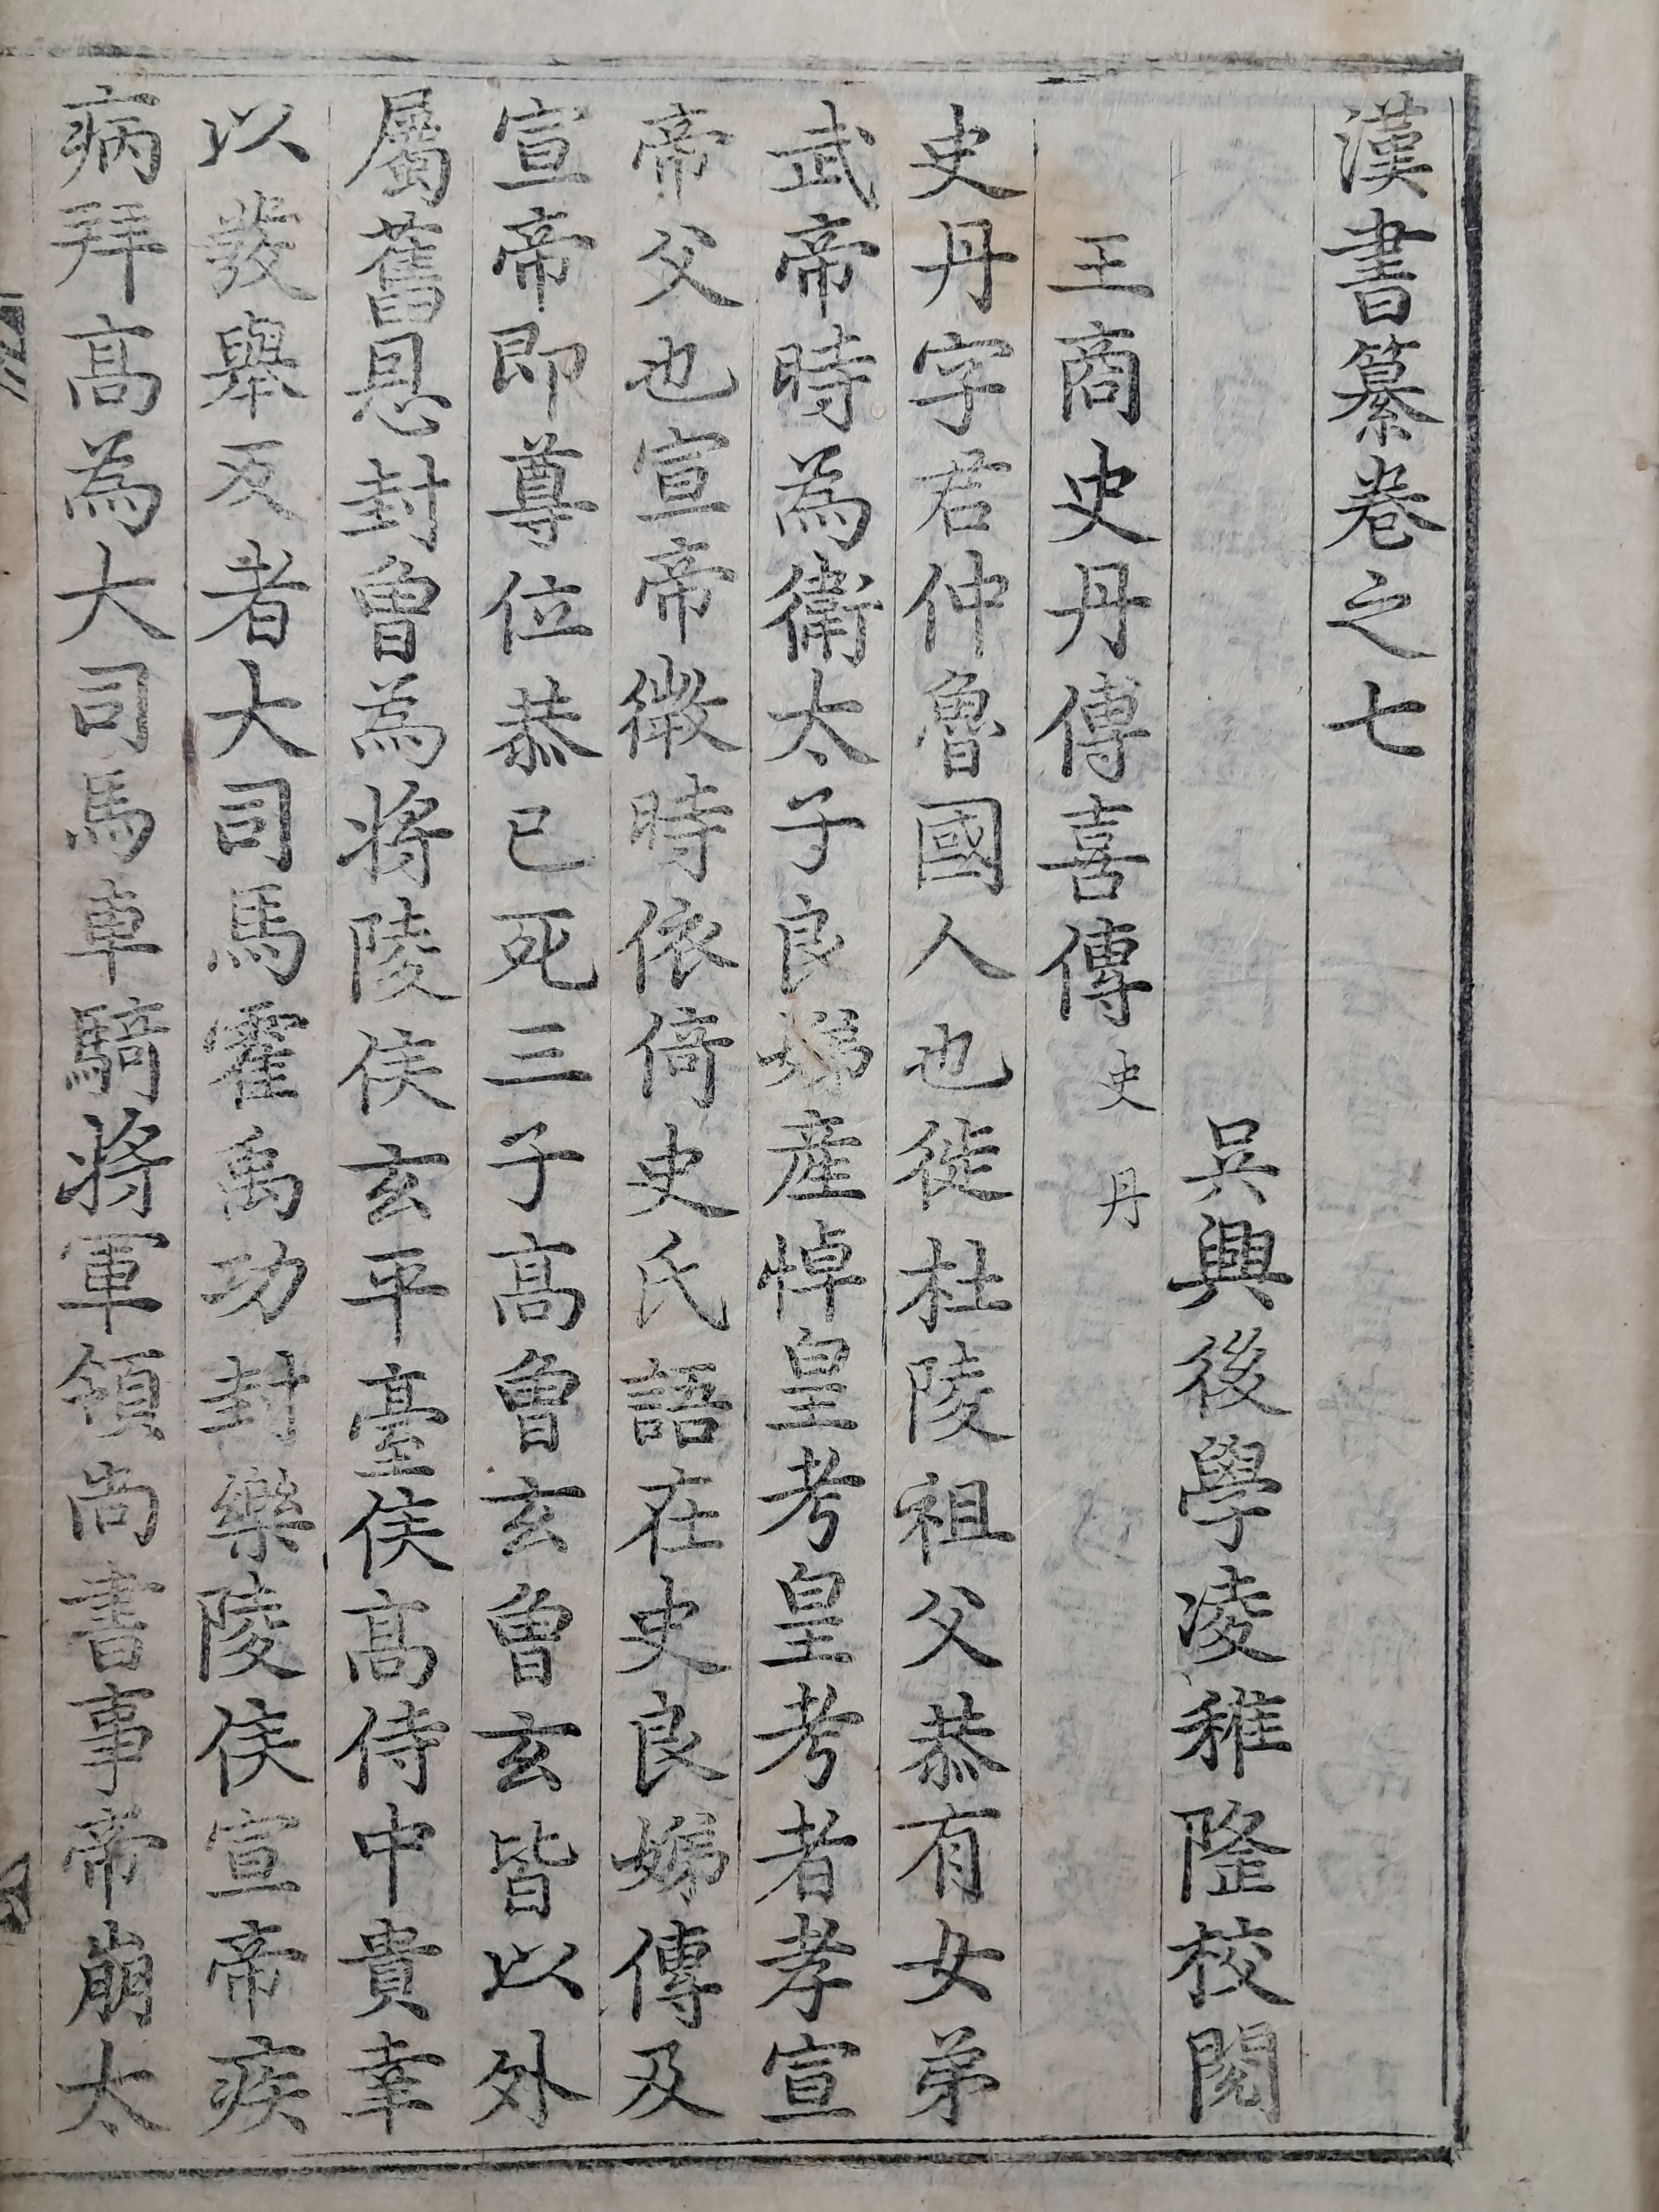 漢書纂卷之七
吳興後學凌稚隆校閱
王商史丹傅喜傳 史丹
史丹字君仲魯國人也徙杜陵祖父恭有女弟
武帝時為衛太子良娣產悼皇考皇考者孝宣
帝父也宣帝微時依倚史氏語在史良娣傳及
宣帝即尊位恭已死三子高曾玄曾玄皆以外
屬舊恩封曾為將陵侯玄平臺侯高侍中貴幸
以發舉反者大司馬霍禹功封樂陵侯宣帝疾
病拜高為大司馬車騎將軍領尚書事帝崩太